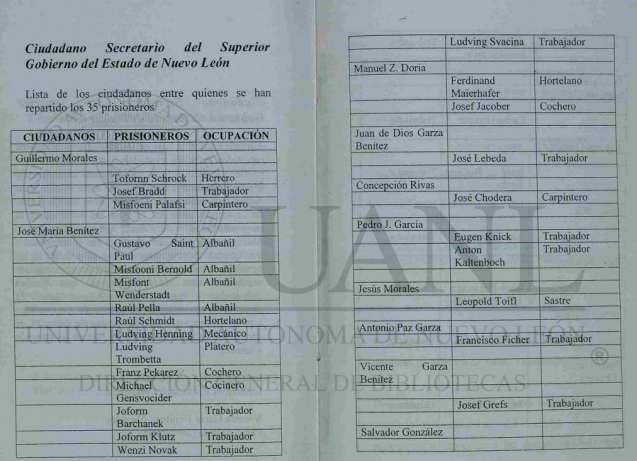 Ciudadano Secretario del Superior
Gobierno del Estado de Nuevo León
Lista de los ciudadanos entre quienes se han
repartido los 35 prisioneros
CIUDADANOS PRISIONEROS OCUPACIÓN
Guillermo Morales
Tofornn Schrock Herrero
Josef Bradd Trabajador
Misfoeni Palafsi Carpintero
José María Benítez
Gustavo Saint Albañil
Paul
Misfooni Bernold Albañil
Misfont Albañil
Wenderstadt
Raúl Pella Albañil
Raúl Schmidt Hortelano
Ludving Henning Mecánico
Ludving Platero
Trombetta
Franz Pekarez Cochero
Michael Cocinero
Gensvocider
Joform Trabajador
Barchanek
Joform Klutz Trabajador
Wenzi Novak Trabajador
Ludving Svacina Trabajador
Manuel Z. Doria
Ferdinand Hortelano
Maierhafer
Josef Jacober Cochero
Juan de Dios Garza
Benítez
José Lebeda Trabajador
Concepción Rivas
José Chodera Carpintero
Pedro J. García
Eugen Knick Trabajador
Anton Trabajador
Kaltenboch
Jesús Morales
Leopold Toitl Sastre
Antonio Paz Garza
Francisco Ficher Trabajador
Vicente Garza
Benítez
Josef Grefs Trabajador
Salvador González
UANL
UNIVERSIDAD AUTÓNOMA DE NUEVO LEÓN
®
DIRECCIÓN GENERAL DE BIBLIOTECAS